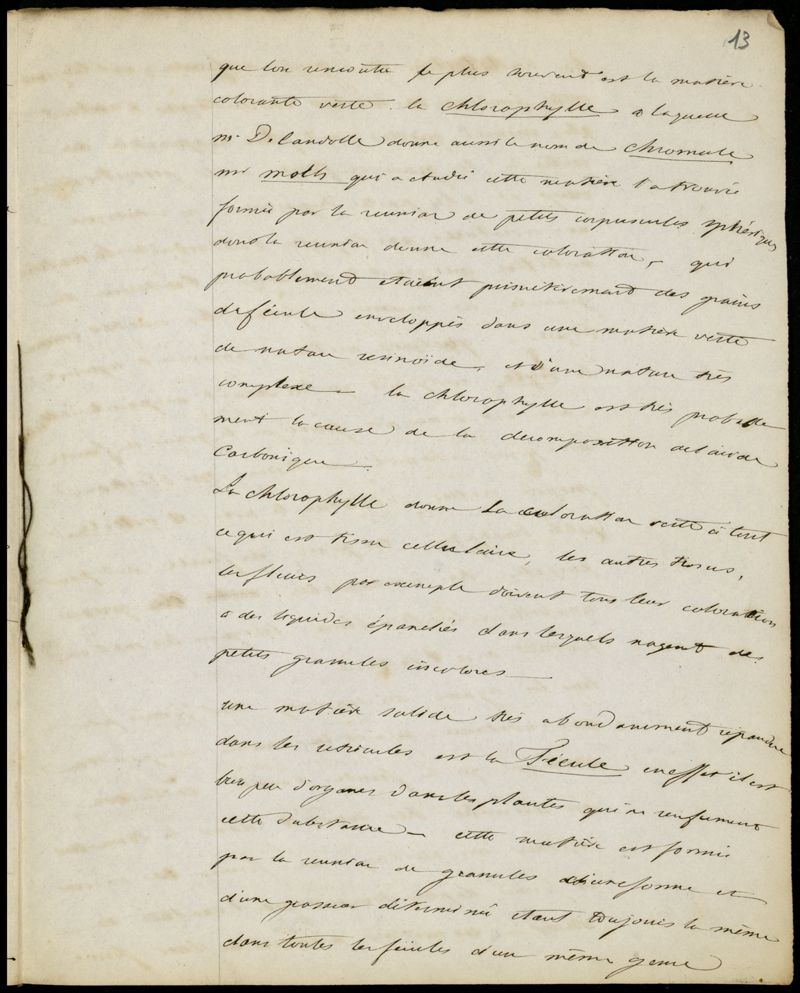 13
que l'on rencontre le plus souvent est la matière
colorante verte. la chlorophylle a laquelle
mr Decandolle donne aussi le nom de chromule
mr molh qui a etudié cette matière l'a trouvée
formée par la reunion de petits corpuscules sphériques
dont la reunion donne cette coloration, qui
probablement etaient primitivement des grains
de fécule enveloppés dans une matière verte
de nature resinoïde, et d'une nature très
complexe — la chlorophylle est très probable
ment la cause de la decomposition de l'acide
Carbonique —.
La chlorophylle donne la coloration verte à tout
ce qui est tissu cellulaire, les autres tissus,
les fleurs par exemple doivent tous leur coloration
a des liquides épanchés dans lesquels nagent des
petits granules incolores —
une matière solide très abondamment répandue
dans les utricules est la Fécule en effet il est
bien peu d'organes dans les plantes qui ne renferment
cette substance — cette matière est formée
par la reunion de granules d'une forme et
d'une grosseur déterminée etant toujours la même
dans toutes les fécules d'un même genre